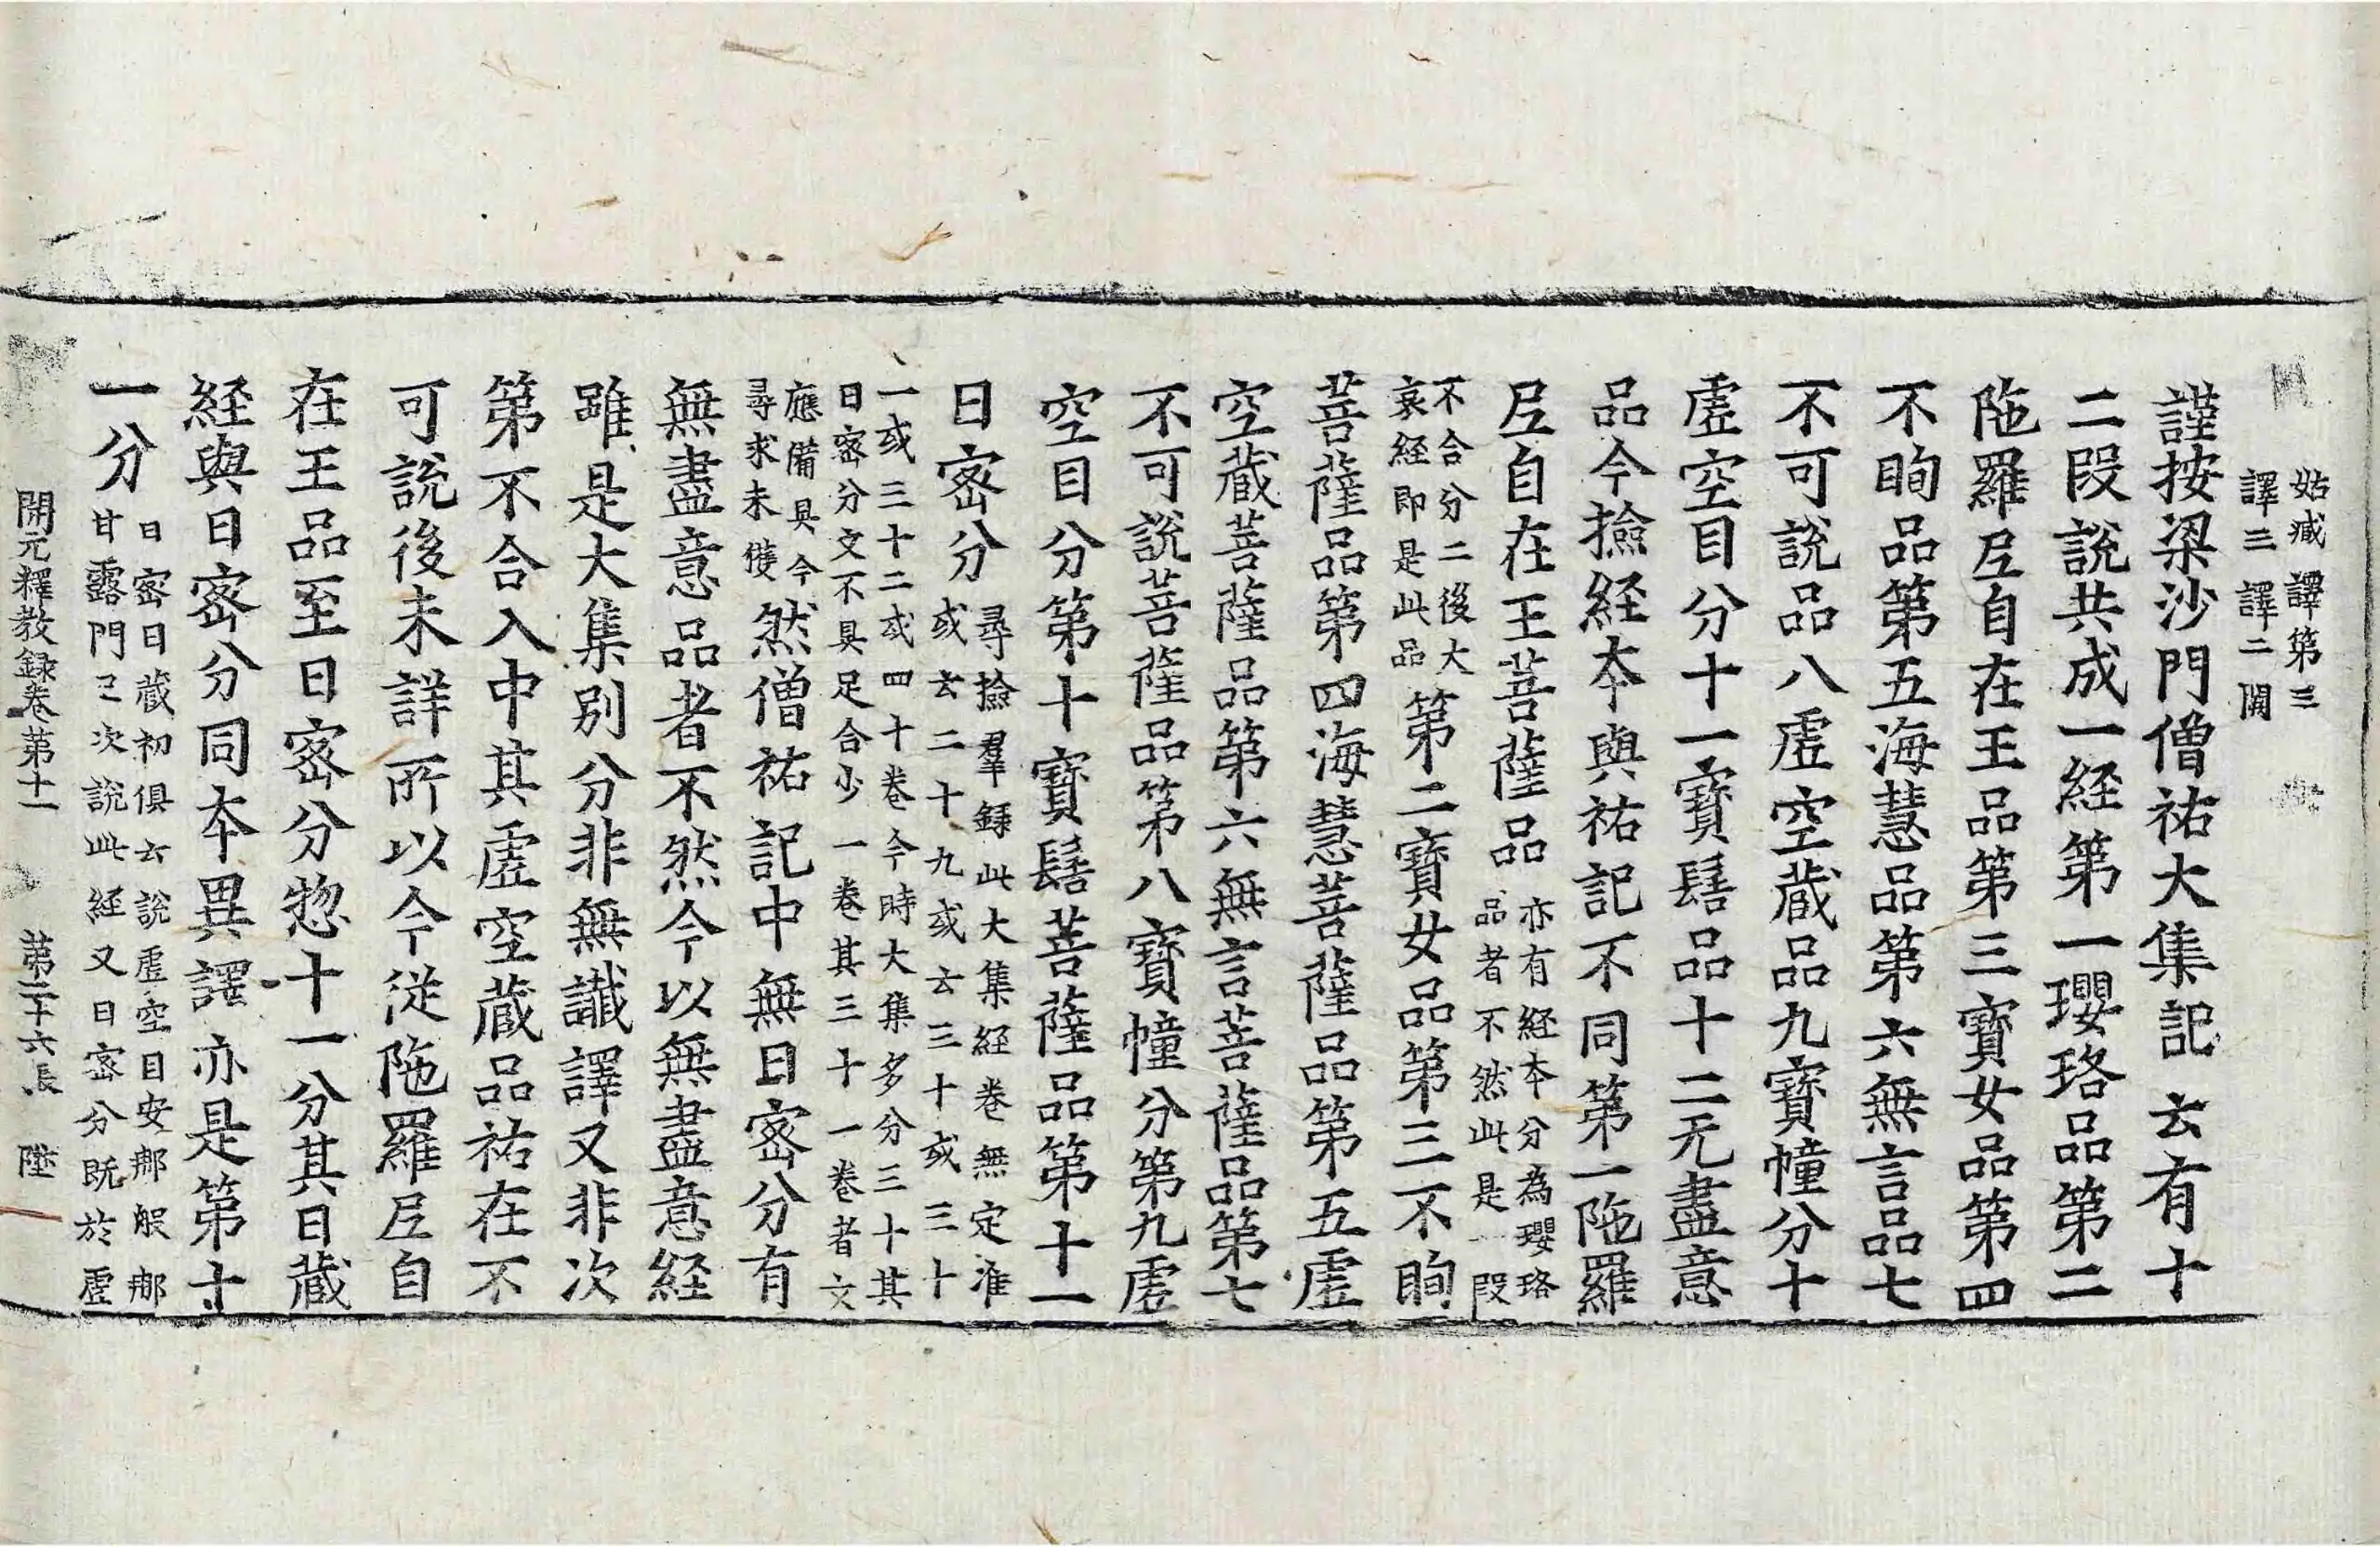 姑臧譯第三
譯三譯二闕
謹按梁沙門僧祐大集記云有十
二段說共成一経第一瓔珞品第二
陁羅𡰱自在王品第三寶女品第四
不眴品第五海慧品第六無言品七
不可說品八虛空蔵品九寶幢分十
虛空目分十一寶髻品十二无盡意
品今撿経本與祐記不同第一陁羅
𡰱自在王菩薩品亦有経本分為瓔珞
品者不然此是一段
不合分二後大
哀経即是此品第二寶女品第三不眴
菩薩品第四海慧菩薩品第五虛
空蔵菩薩品第六無言菩薩品第七
不可說菩薩品第八寶幢分第九虛
空目分第十寶髻菩薩品第十一
日密分尋撿羣録此大集経卷無定准
或云二十九或云三十或三十
一或三十二或四十卷今時大集多分三十其
日密分文不具足合少一卷其三十一卷者文
應備具今
尋求未獲然僧祐記中無日密分有
無盡意品者不然今以無盡意経
雖是大集別分非無讖譯又非次
第不合入中其虛空蔵品祐在不
可說後未詳所以今従陁羅𡰱自
在王品至日密分惣十一分其日蔵
経與日密分同本異譯亦是第十
一分日密日蔵初俱云說虛空目安那般那
甘露門已次說此経又日密分既於虛
開元釋教録卷第十一　第二十六張　陞